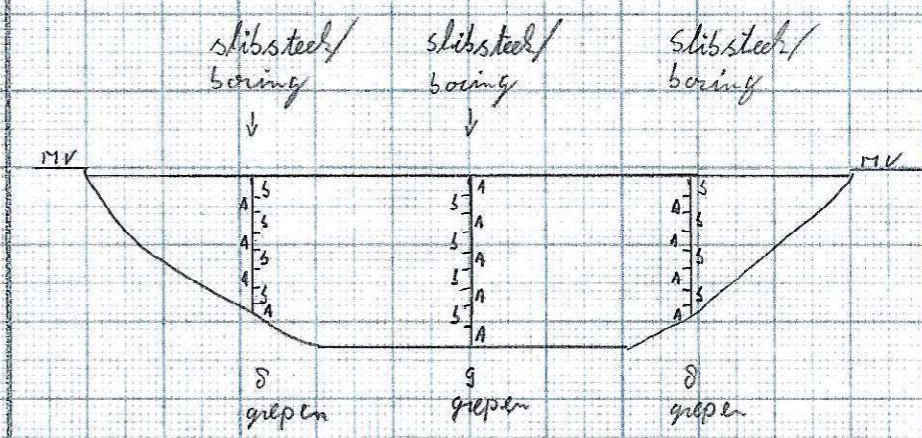 slibsteek/
boring
slibsteek/
boring
slibsteek/
boring
MV
MV
S
A
S
A
S
A
S
A
A
S
A
S
A
S
A
S
A
S
A
S
A
S
A
S
A
8
grepen
9
grepen
8
grepen